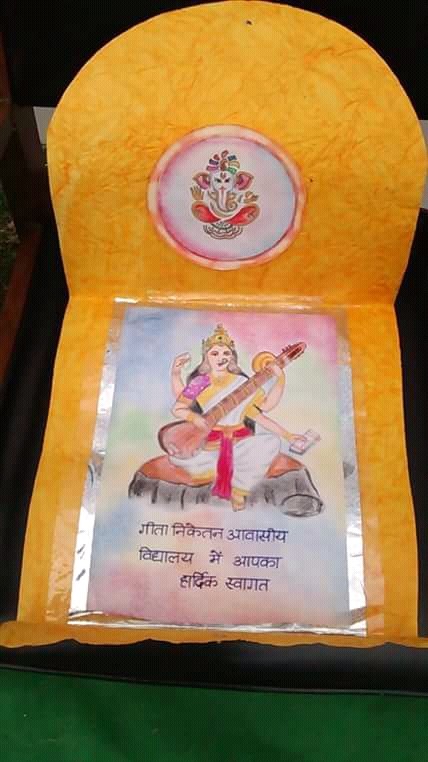 गीता निकेतन आवासीय
विद्यालय में आपका
हार्दिक स्वागत